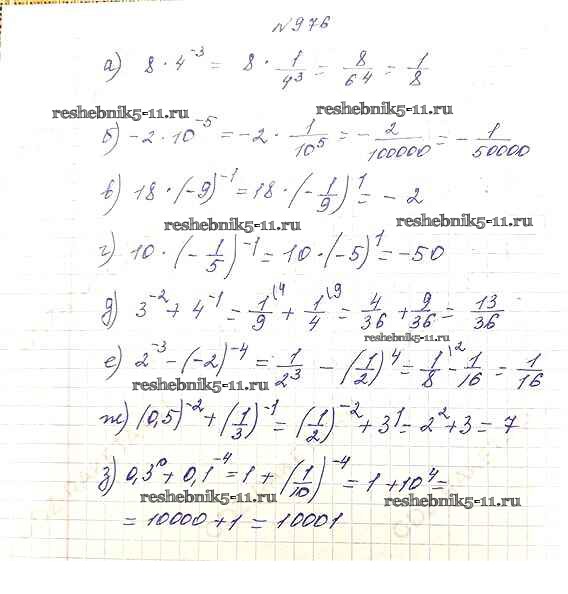 №976
а) 8 · 4^{-3} = 8 · 1/4^3 = 8/64 = 1/8
reshebnik5-11.ru reshebnik5-11.ru
б) -2 · 10^{-5} = -2 · 1/10^5 = -2/100000 = -1/50000
в) 18 · (-9)^{-1} = 18 · (-1/9)^1 = -2
reshebnik5-11.ru reshebnik5-11.ru
г) 10 · (-1/5)^{-1} = 10 · (-5)^1 = -50
д) 3^{-2} + 4^{-1} = 1/9^{\4} + 1/4^{\9} = 4/36 + 9/36 = 13/36
reshebnik5-11.ru
е) 2^{-3} - (-2)^{-4} = 1/2^3 - (1/2)^4 = 1/8^{\2} - 1/16 = 1/16
reshebnik5-11.ru
ж) (0,5)^{-2} + (1/3)^{-1} = (1/2)^{-2} + 3^1 = 2^2 + 3 = 7
з) 0,3^0 + 0,1^{-4} = 1 + (1/10)^{-4} = 1 + 10^4 =
reshebnik5-11.ru reshebnik5-11.ru
= 10000 + 1 = 10001
reshebnik5-11.ru